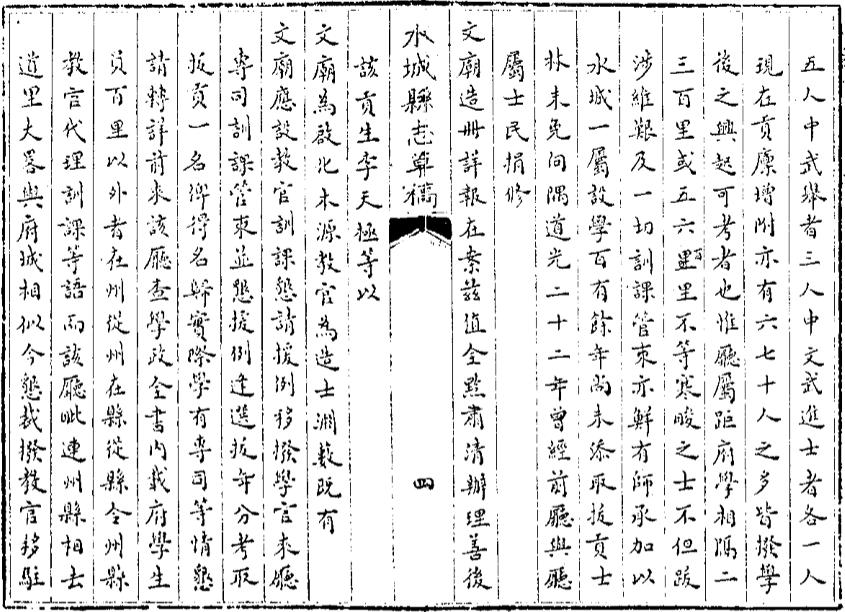 五人中武舉者三人中文武進士者各一人
現在貢廪增附亦有六七十人之多皆撥學
後之興起可考者也惟廳屬距府學相隔二
三百里或五六百里不等寒畯之士不但跋
涉維艱及一切訓課管束亦鮮有師承加以
水城一屬設學百有餘年尚未添取拔貢士
林未免向隅道光二十二年曾經前廳與廳
屬士民捐修
文廟造册詳報在案茲值全黔肅清辦理善後
水城縣志草稿
四
該貢生李天極等以
文廟為啟化本源教官為造士淵藪既有
文廟應設教官訓課懇請援例移撥學官來廳
專司訓課管束並懇援例逢選拔年分考取
拔貢一名俾得名歸實際學有專司等情懇
請轉詳前來該廳查學政全書内載府學生
員百里以外者在州從州在縣從縣令州縣
教官代理訓課等語而該廳毗連州縣相去
道里大畧與府城相似今懇裁撥教官移駐